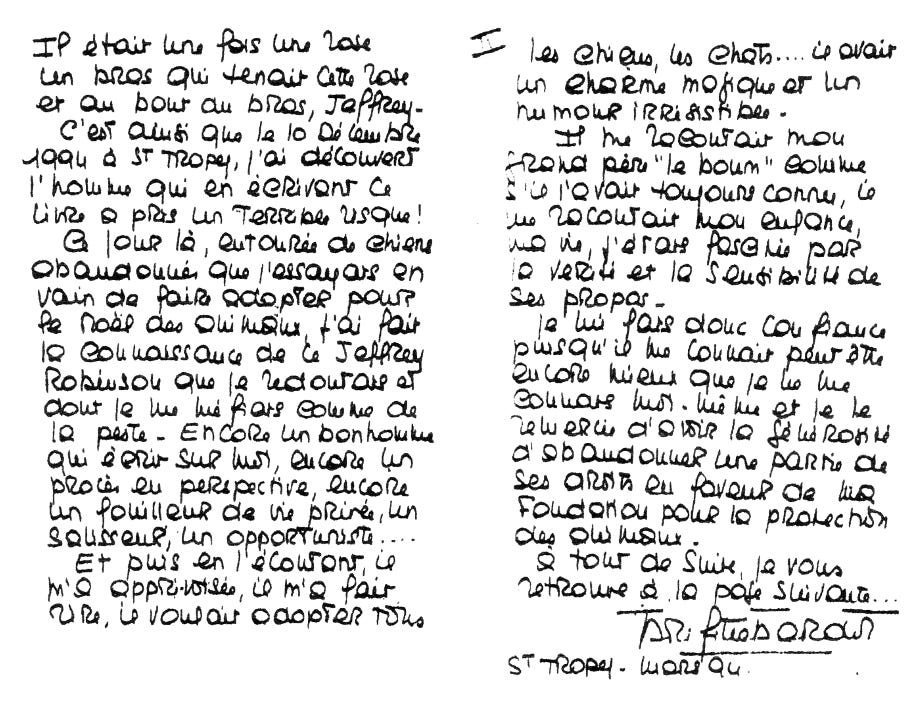 Il était une fois une rose
un bras qui tenait cette rose
et au bout du bras, Jeffrey -
C'est ainsi que le 10 Décembre
1994 à St Tropez, j'ai découvert
l'homme qui en écrivant ce
livre a pris un terrible risque !
Ce jour là, entourée de chiens
abandonnés que j'essayais en
vain de faire adopter pour
le Noël des animaux, j'ai fait
la connaissance de ce Jeffrey
Robinson que je redoutais et
dont je me méfiais comme de
la peste - Encore un bonhomme
qui écrit sur moi, encore un
procès en perspective, encore
un fouilleur de vie privée, un
salisseur, un opportuniste....
Et puis en l'écoutant, il
m'a apprivoisée, il m'a fait
rire, il voulait adopter tous
II
les chiens, les chats.... il avait
un charme magique et un
humour irrésistible.
Il me racontait mon
grand père "le boum" comme
s'il l'avait toujours connu, il
me racontait mon enfance,
ma vie, j'étais fascinée par
la vérité et la sensibilité de
ses propos -
Je lui fais donc confiance
puisqu'il me connait peut être
encore mieux que je ne me
connais moi-même et je le
remercie d'avoir la générosité
d'abandonner une partie de
ses droits en faveur de ma
Fondation pour la protection
des animaux.
A tout de suite, je vous
retrouve à la page suivante...
Brigitte Bardot
St Tropez - Mars